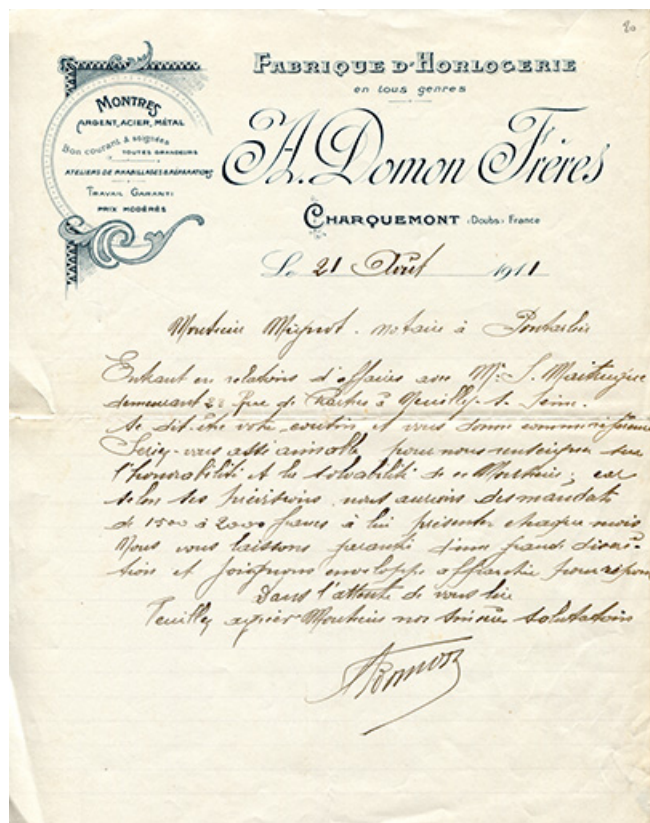 20
FABRIQUE D'HORLOGERIE
en tous genres
MONTRES
ARGENT, ACIER, MÉTAL
Bon courant & soignées
TOUTES GRANDEURS
ATELIERS DE RHABILLAGES & RÉPARATIONS
TRAVAIL GARANTI
PRIX MODÉRÉS
A. Domon Frères
CHARQUEMONT (Doubs) France
Le 21 Août 1911
Monsieur Mignot. notaire à Pontarlier
Entrant en relations d'affaires avec Mr.
demeurant 28 Rue de Chartres à Neuilly s. Seine.
Se dit être votre cousin et vous donne comme référence
Seriez-vous assi aimable pour nous renseigner sur
l'honorabilité et la solvabilité de ce Monsieur; car
selon ses nous aurions des mandats
de 1500 à 2000 francs à lui présenter chaque mois
Nous vous laissons garantie d'une grande discré-
tion et joignons enveloppe affranchie pour réponse
Dans l'attente de vous lire
Veuillez agréer Monsieur nos sincères salutations
A Domon